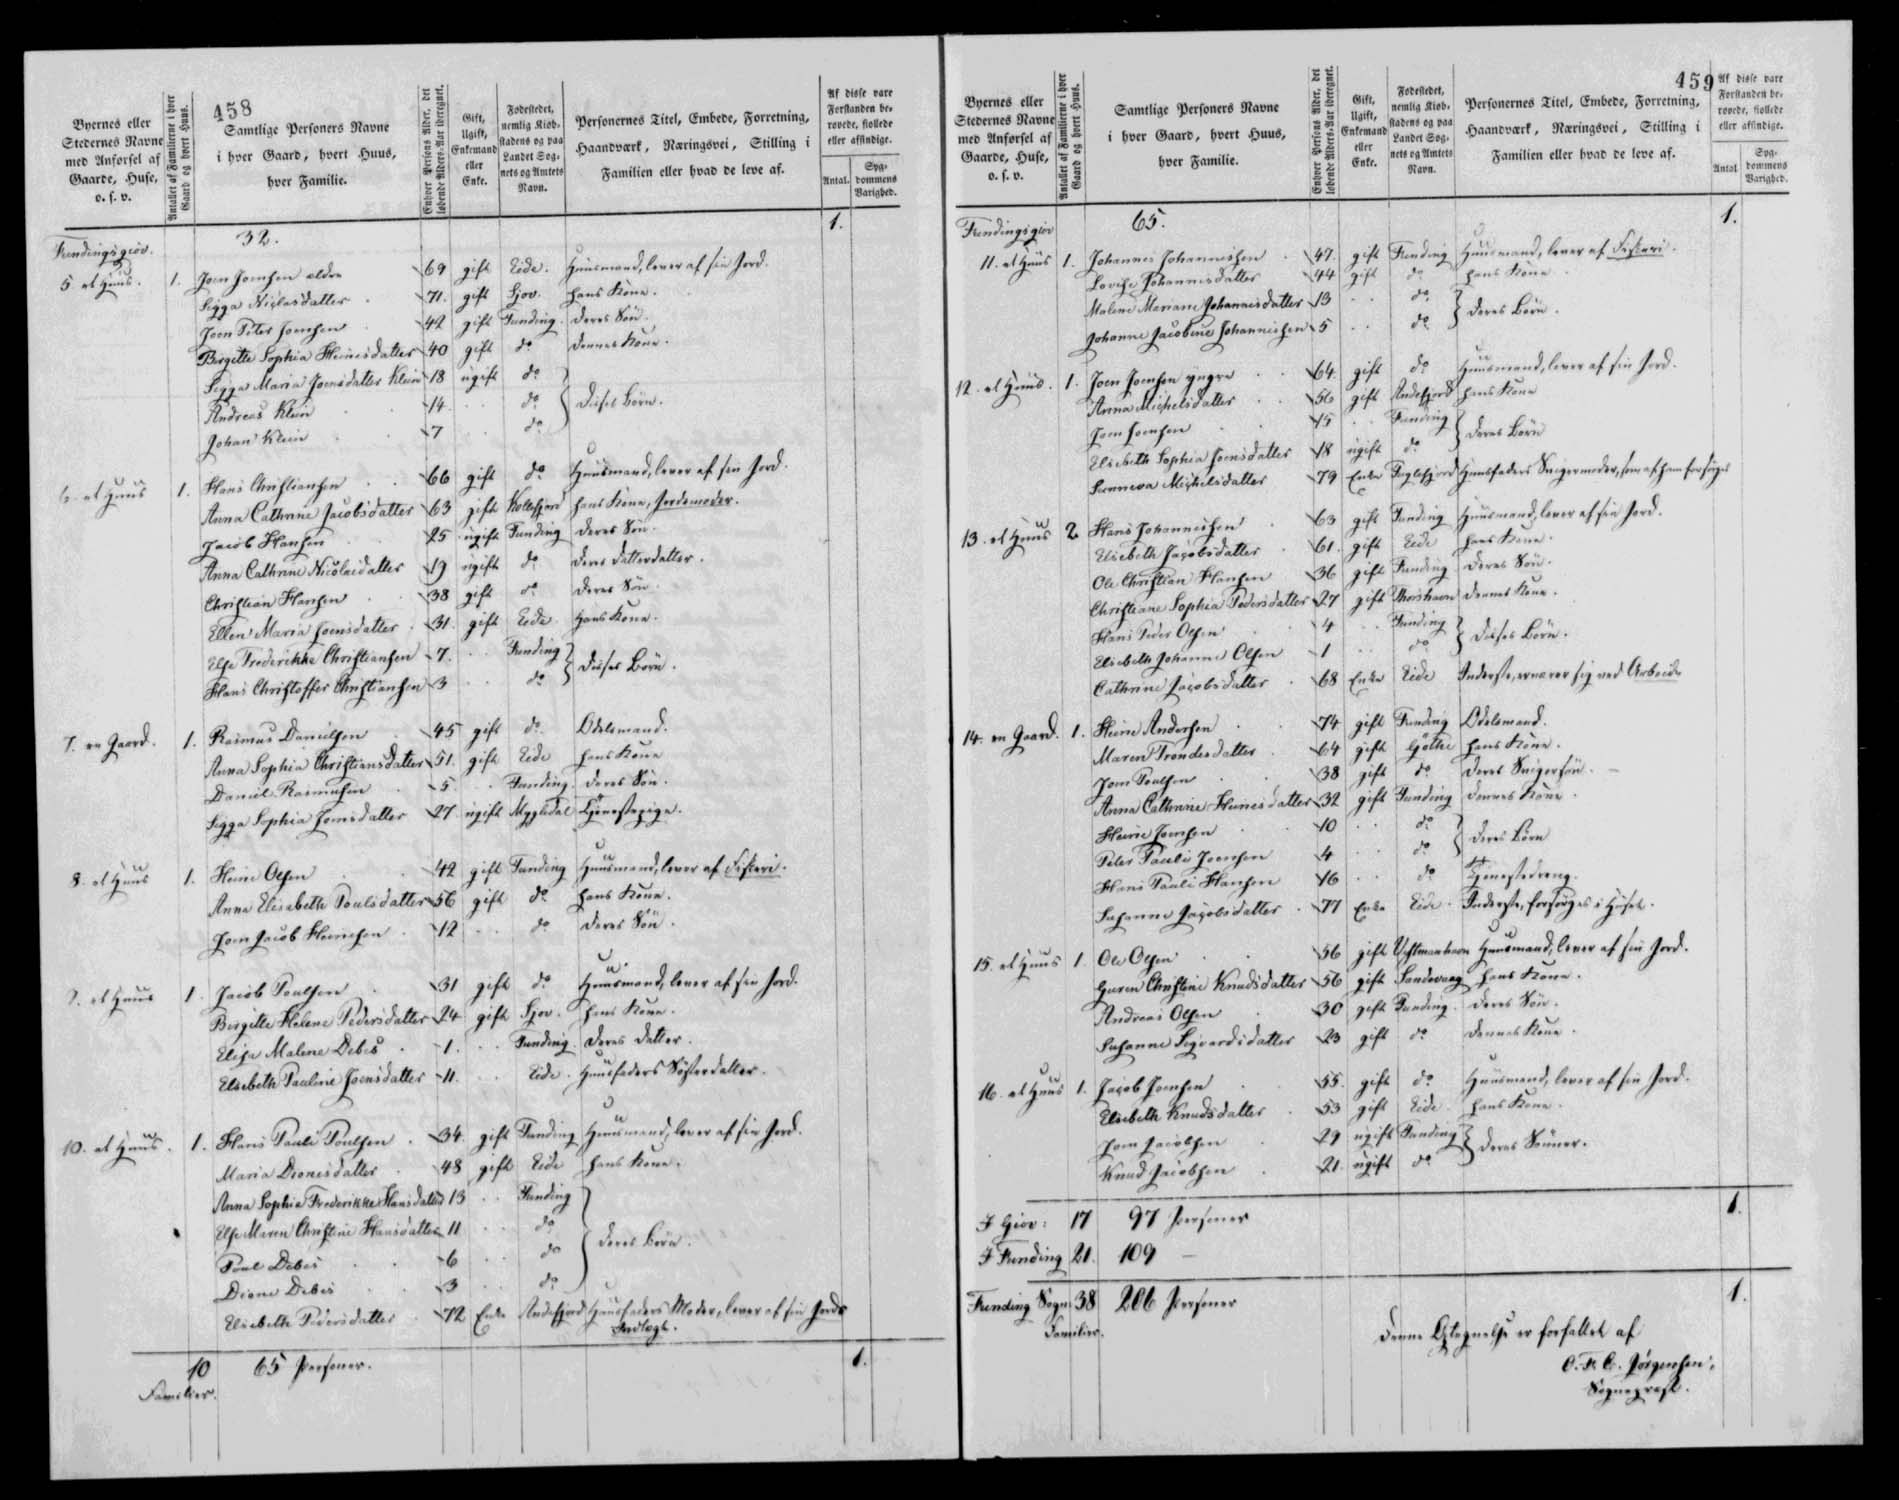 458
Byernes eller Stedernes Navne med Anførsel af Gaarde, Huse, o. s. v.
Antallet af Familierne i hver Gaard og hvert Huus.
Samtlige Personers Navne i hver Gaard, hvert Huus, hver Familie.
Enhver Persons Alder, det løbende Alders-Aar iberegnet.
Gift, Ugift, Enkemand eller Enke.
Fødestedet, nemlig Kiøbstadens og paa Landet Sognets og Amtets Navn.
Personernes Titel, Embede, Forretning, Haandværk, Næringsvei, Stilling i Familien eller hvad de leve af.
Af disse vare Forstanden berøvede, fiollede eller afsindige.
Antal.
Sygdommens Varighed.
32. 1.
Fundingsgiov.
5 et Huus. 1. Joen Joensen ældre 69 gift Eide. Huusmand, lever af sin Jord.
Sigga Niclasdatter 71. gift Gjov. hans Kone.
Joen Peter Joensen 42 gift Funding. deres Søn.
Birgitte Sophia Heinesdatter 40 gift do dennes Kone.
Sigga Maria Joensdatter Klein 18 ugift do
Andreas Klein 14. do } disses Børn.
Johan Klein 7 do
6. et Huus 1. Hans Christiansen 66 gift do Huusmand, lever af sin Jord.
Anna Cathrine Jacobsdatter 63 gift Kollefjord hans Kone, Jordemoder.
Jacob Hansen 25 ugift Funding deres Søn.
Anna Cathrine Nicolaidatter 19 ugift do deres Datterdatter.
Christian Hansen 38 gift do deres Søn.
Ellen Maria Joensdatter 31. gift Eide. Hans Kone.
Else Frederikke Christiansen 7. Funding } disses Børn.
Hans Christoffer Christiansen 3 do
7. en Gaard. 1. Rasmus Danielsen 45 gift do. Odelsmand.
Anna Sophia Christiansdatter 51. gift Eide hans Kone
Daniel Rasmussen 5 Funding. deres Søn.
Sigga Sophia Joensdatter 27. ugift Mygledal Tjenestepige.
8. et Huus 1. Heine Olsen 42 gift Funding Huusmand, lever af Fiskeri.
Anna Elisabeth Poulsdatter 56 gift do hans Kone.
Joen Jacob Heinesen 12 do deres Søn.
9. et Huus 1. Jacob Poulsen 31 gift do Huusmand, lever af sin Jord.
Birgitte Helene Pedersdatter 24 gift Gjov. hans Kone.
Elisa Malene Debes 1. Funding. deres Datter.
Elsebeth Pauline Joensdatter 11. Eide. Huusfaders Søsterdatter.
10. et Huus. 1. Hans Pauli Poulsen 34. gift Funding Huusmand, lever af sin Jord.
Maria Dionesdatter 48 gift Eide hans Kone.
Anna Sophia Frederikke Hansdatter 13 Funding
Else Maren Christine Hansdatter 11 do
Poul Debes 6 do } deres Børn.
Dione Debes 3 do
Elsebeth Pedersdatter 72 Enke Andefjord Huusfaders Moder, lever af sin Jords
Indtægt.
10 Familier. 65 Personer. 1.
459
Byernes eller Stedernes Navne med Anførsel af Gaarde, Huse, o. s. v.
Antallet af Familierne i hver Gaard og hvert Huus.
Samtlige Personers Navne i hver Gaard, hvert Huus, hver Familie.
Enhver Persons Alder, det løbende Alders-Aar iberegnet.
Gift, Ugift, Enkemand eller Enke.
Fødestedet, nemlig Kiøbstadens og paa Landet Sognets og Amtets Navn.
Personernes Titel, Embede, Forretning, Haandværk, Næringsvei, Stilling i Familien eller hvad de leve af.
Af disse vare Forstanden berøvede, fiollede eller afsindige.
Antal
Sygdommens Varighed.
Fundingsgiov 65. 1.
11. et Huus 1. Johannes Johannessen 47. gift Funding Huusmand, lever af Fiskeri.
Lovise Johannesdatter 44 gift do hans Kone
Malene Mariane Johannesdatter 13 do } deres Børn.
Johanne Jacobine Johannessen 5 do
12. et Huus. 1. Joen Joensen yngre 64. gift do Huusmand, lever af sin Jord.
Anna Michelsdatter 56 gift Andefjord hans Kone
Joen Joensen 15 Funding } deres Børn
Elsebeth Sophia Joensdatter 18 ugift do
Sunneva Michelsdatter 79 Enke Fuglefjord Huusfaders Svigermoder, som af ham forsørges
13. et Huus 2. Hans Johannessen 63 gift Funding Huusmand, lever af sin Jord.
Elsebeth Jacobsdatter 61. gift Eide hans Kone.
Ole Christian Hansen 36 gift Funding deres Søn.
Christiane Sophia Pedersdatter 27 gift Thorshavn dennes Kone.
Hans Peder Olsen 4 Funding } disses Børn.
Elsebeth Johanne Olsen 1 do
Cathrine Jacobsdatter 68 Enke Eide Inderste, ernærer sig ved Arbeide
14. en Gaard. 1. Heine Andersen 74 gift Funding Odelsmand.
Maren Trondesdatter 64 gift Gøthe hans Kone.
Joen Poulsen 38 gift do deres Svigersøn.
Anna Cathrine Heinesdatter 32 gift Funding dennes Kone.
Heine Joensen 10 do } deres Børn
Peter Pauli Joensen 4 do
Hans Pauli Hansen 16 do Tjenestedreng.
Susanne Jacobsdatter 77 Enke Eide. Inderste, forsørges i Huset.
15. et Huus 1. Ole Olsen 56 gift Vestmanhavn Huusmand, lever af sin Jord.
Guren Christine Knudsdatter 56 gift Sandevaag hans Kone.
Andreas Olsen 30 gift Funding. deres Søn.
Susanne Sigvardsdatter 23 gift do dennes Kone.
16. et Huus 1. Jacob Joensen 55. gift do Huusmand, lever af sin Jord.
Elsebeth Knudsdatter 53 gift Eide. hans Kone.
Joen Jacobsen 29 ugift Funding } deres Sønner.
Knud Jacobsen 21. ugift do
I Giov: 17 97 Personer 1.
I Funding 21. 109 —
Funding Sogn: 38 Familier. 206 Personer 1.
Denne Optegnelse er forfattet af
C. Jørgensen,
Sognepræst.